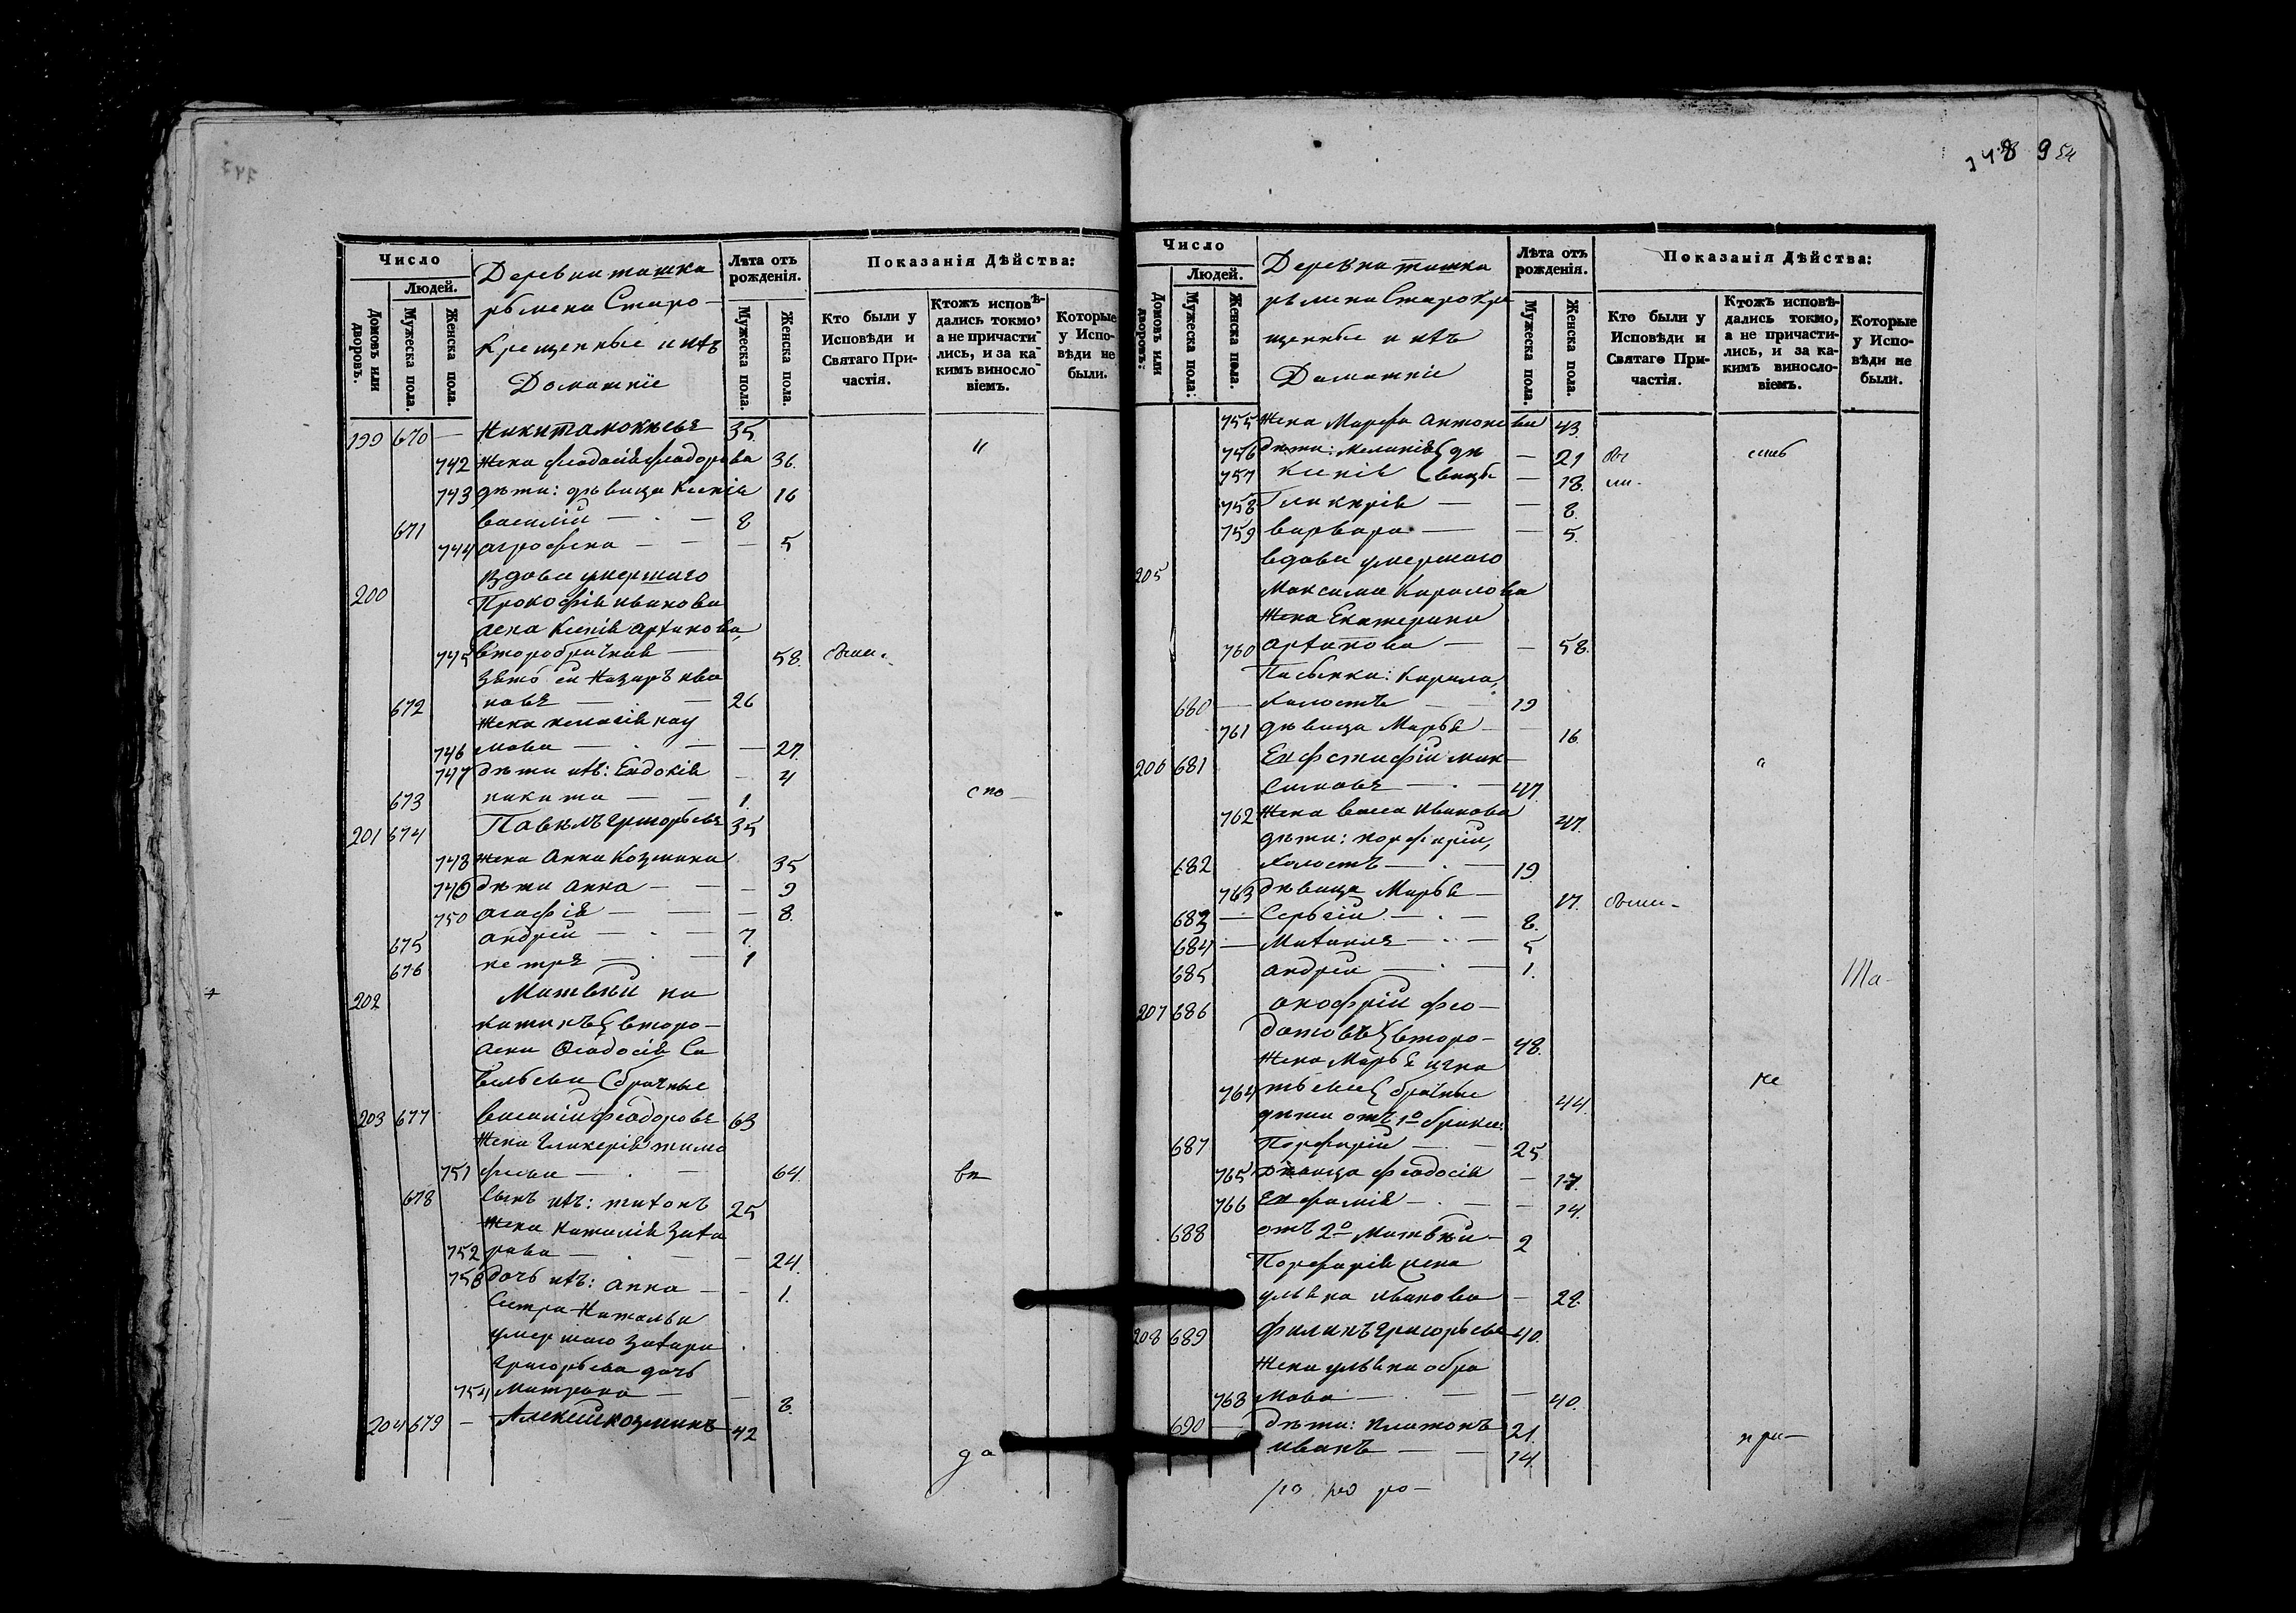 748 9 54
Число
Людей.
Домовъ или дворовъ.
Мужеска пола.
Женска пола.
Деревни ташка
рмени Старо-
Крещенные и ихъ
Домашніе
Лѣта отъ рожденія.
Мужеска пола.
Женска пола.
Показанія Дѣйства:
Кто были у Исповѣди и Святаго Причастія.
Ктожъ исповѣдались токмо, а не причастились, и за какимъ винословіемъ.
Которые у Исповѣди не были.
199 670 — Никита 35.
742 Жена Феодосія Феодорова 36. "
743 дѣти: дѣвица Ксенія 16
671 Василій — 8
744 Агрофена — 5
200 Вдова умершаго
Прокофія Иванова
жена Ксенія Архипова,
745 второбрачная — 58. были.
Зять ея Назаръ Ива
672 новъ — 26
Жена Пелагія Нау
746 мова — 27.
747 дѣти ихъ: Евдокія — 4
673 Никита — 1. спо
201 674 Павелъ Григорьевъ 35
748 Жена Анна Козмина 35
749 дѣти Анна — 9
750 Агафія — 8.
675 Андрей — 7.
676 Петръ — 1
202 Матвѣй
второ-
жена Феодосія Са
вельева брачные
203 677 Василій Феодоровъ 63
Жена Гликерія Тимо
751 феева — 64. вѣ
678 Сынъ ихъ: Тихонъ 25
Жена Наталія Заха
752 рова — 24.
753 дочь ихъ: Анна — 1.
Сестра Натальи
умершаго Захара
Григорьева дочь
754 Матрона — 8.
204 679 — Алексѣй Козминъ 42
да
Число
Людей.
Домовъ или дворовъ:
Мужеска пола:
Женска пола.
Деревни ташка
рмени Старокре
щенные и ихъ
Домашніе
Лѣта отъ рожденія.
Мужеска пола.
Женска пола.
Показанія Дѣйства:
Кто были у Исповѣди и Святаго Причастія.
Ктожъ исповѣдались токмо, а не причастились, и за какимъ винословіемъ.
Которые у Исповѣди не были.
755 Жена Марфа Антонова 43.
756 дѣти: Меланія дѣ — 21 бы
757 Ксенія вицы — 18. ли.
758 Гликерія — 8.
759 Варвара — 5.
205 вдова умершаго
Максима Кирилова
Жена Екатерина
760 Архипова — 58.
Пасынки: Кирила,
680 — холостъ — 19
761 дѣвица Марья — 16.
206 681 Евфстафій Мак- "
симовъ — 47.
762 Жена Васса Иванова 47.
дѣти: Порфирій,
682 холостъ — 19.
763 дѣвица Марья — 17. были.
683 — Сергѣй — 8.
684 — Михаилъ — 5
685 Андрей — 1.
207 686 Онофрій Фео-
дотовъ второ- 48.
Жена Марья Игна
764 тьева брачные 44. не
дѣти отъ 1о брака:
687 Порфирій — 25
765 дѣвица Феодосія — 17.
766 Евфимія — 14.
688 отъ 2о Матвѣй — 2
Порфирія жена
Ульяна Иванова — 22.
208 689 Филипъ Григорьевъ 40.
Жена Ульяна Абра
768 мова — 40.
690 — дѣти: Платонъ 21.
Иванъ — 14. при